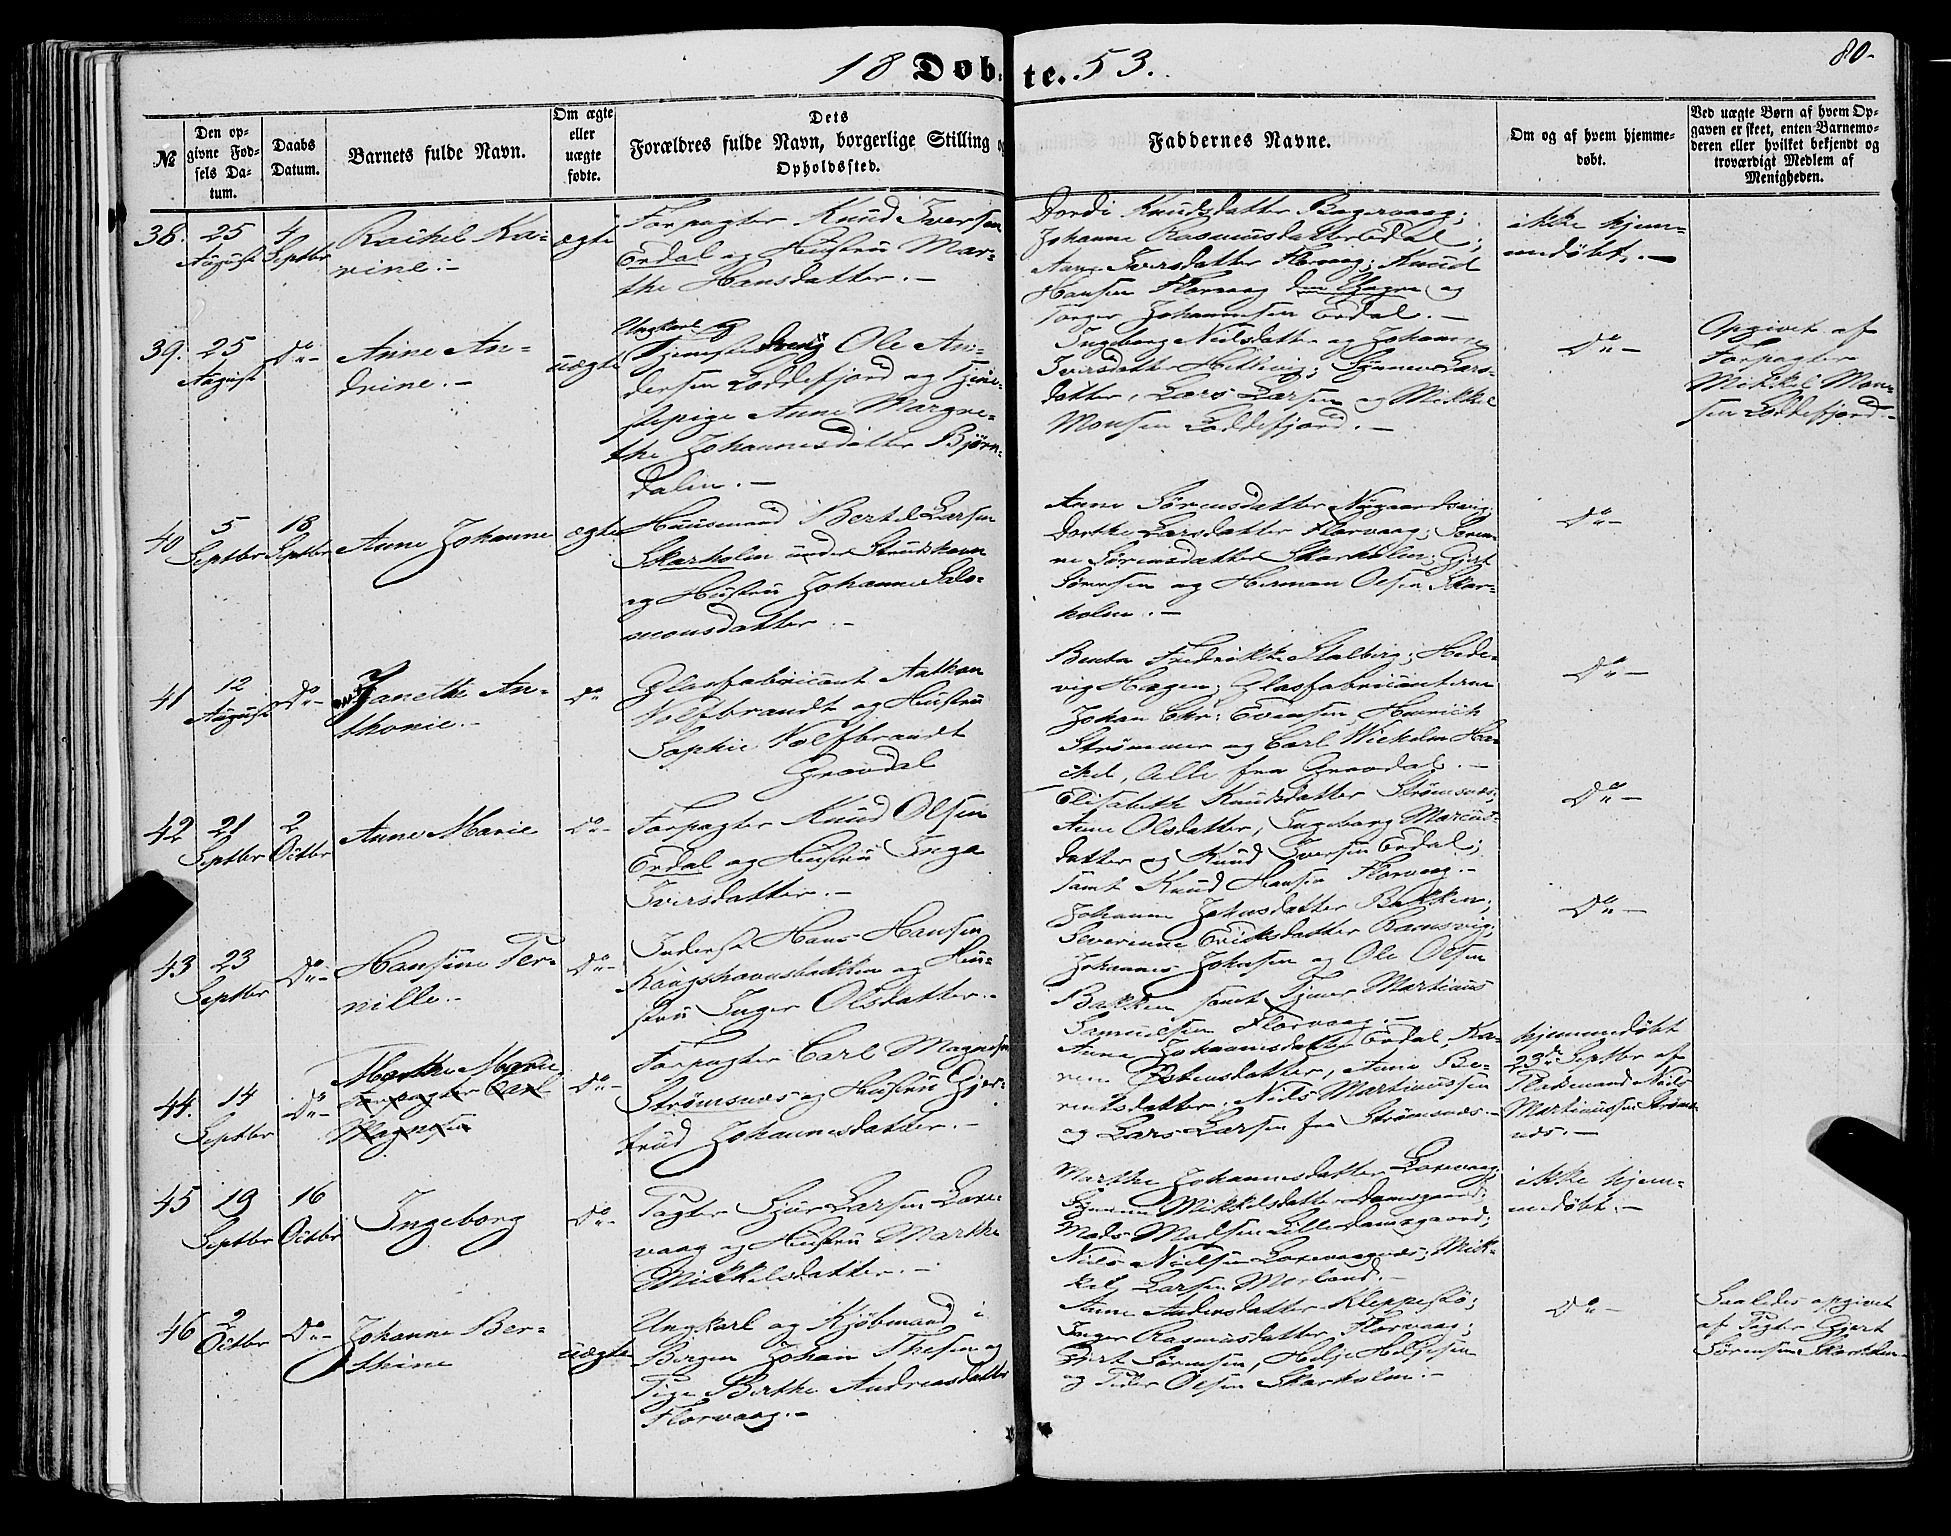 18 Døbte. 53.
80.
№
Den op-
givne Fød-
sels Da-
tum.
Daabs
Datum.
Barnets fulde Navn.
Om ægte
eller
uægte
fødte.
Dets
Forældres fulde Navn, borgerlige Stilling og
Opholdssted.
Faddernes Navne.
Om og af hvem hjemme-
døbt.
Ved uægte Børn af hvem Op-
gaven er skeet, enten Barnemo-
deren eller hvilket bekjendt og
troværdigt Medlem af
Menigheden.
38.
25
August
4
Septbr
Rachel Ka-
rine.-
ægte
Forpagter Knud Iversen
Erdal og Hustru Mar-
the Hansdatter.-
Dordi Knudsdatter
Johanne Rasmusdatter Erdal;
Anne Iversdatter Florvaag; Knud
Hansen Florvaag den Yngre og
Johannesen Erdal.-
ikke hjem-
medøbt.-
39.
25
August
Do-
Anne An-
drine.-
uægte
Ungkarl og
Tjenestedreng Ole An-
dersen Loddefjord og Tjene-
stepige Anne Margre-
the Johannesdatter Bjørn-
dalen.-
Ingeborg Nielsdatter og Johanne
Iversdatter; Lars-
datter, Lars Larsen og Mikkel
Monsen Loddefjord.-
Do-
Opgivet af
Forpagter
Mikkel Mon-
sen Loddefjord.-
40
5
Septbr
18
Septbr
Anne Johanne
ægte
Huusmand Bertel Larsen
Skarholm under Strudshavn
og Hustru Johanne Salo-
monsdatter.-
Anne Sørensdatter Nygaardsvig;
Dorthe Larsdatter Florvaag; Seve-
rine Sørensdatter Skarholm; Gjert
Sørensen og Herman Olsen Skar-
holm.-
Do-
41
12
August
Do-
Janette An-
thonie.-
Do
Glasfabricant Anthon
Wolfbrandt og Hustru
Sophie Wolfbrandt
Gravdal
Benta Fredrikke Stalberg; Hede-
vig Hagen; Glasfabricanterne
Johan Chr: Evensen, Henrich
Strømmer og Carl Wilhelm Ha-
ckel, Alle fra Gravdal.-
Do-
42
21
Septbr
2
Octbr
Anne Marie
Do-
Forpagter Knud Olsen
Erdal og Hustru Inga
Iversdatter.-
Elisabeth Knudsdatter Strømsnes;
Anne Olsdatter, Ingeborg Marcus-
datter og Knud Iversen Erdal;
samt Knud Hansen Florvaag.-
Do-
43
23
Septbr
Do-
Hansine Per-
nille.-
Do-
Inderst Hans Hansen
Kongshavnsbakken og Hu-
stru Inger Olsdatter.-
Johanne Johnsdatter Bakken;
Severinne Ericksdatter Ramsvig;
Johannes Johnsen og Ole Olsen
Bakken samt Martinus
Samuelsen Florvaag.-
Do-
44.
14
Septbr
Do-
Marthe Marie
Forpagter Carl
Magnesen
Do-
Forpagter Carl Magnesen
Strømsnes og Hustru Gjer-
trud Johannesdatter.-
Anne Johannesdatter Erdal, Ka-
ren Østensdatter, Anne Be-
rentsdatter, Niels Martinussen
og Lars Larsen fra Strømsnes.-
hjemmedøbt
23de Septbr af
Niels
Martinussen Strøms-
nes.-
45
19
Septbr
16
Octbr
Ingeborg
Do-
Pagter Sjur Larsen Laxe-
vaag og Hustru Marthe
Mikkelsdatter.-
Marthe Johannesdatter Laxevaag;
Mikkelsdatter Damsgaard;
Mads Madsen Lille Damsgaard;
Niels Nielsen Laxevaagnes; Mik-
kel Larsen Morland.-
ikke hjem-
medøbt.-
46
2
Octbr
Do-
Johanne Ber-
thine
uægte
Ungkarl og Kjøbmand i
Bergen Johan Thesen og
Pige Berthe Andreasdatter
Florvaag.-
Anne Andersdatter Kleppestø;
Inger Rasmusdatter, Florvaag;
Gjert Sørensen, Helje Helgesen
og Peder Olsen Skarholm.-
Do-
Saaledes opgivet
af Pagter Gjert
Sørensen Skarholm.